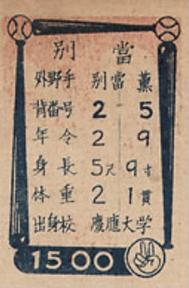 別當
外野手 別當 薫
背番号 25
年令 29
身長 5尺9寸
体重 21貫
出身校 慶應大学
1500